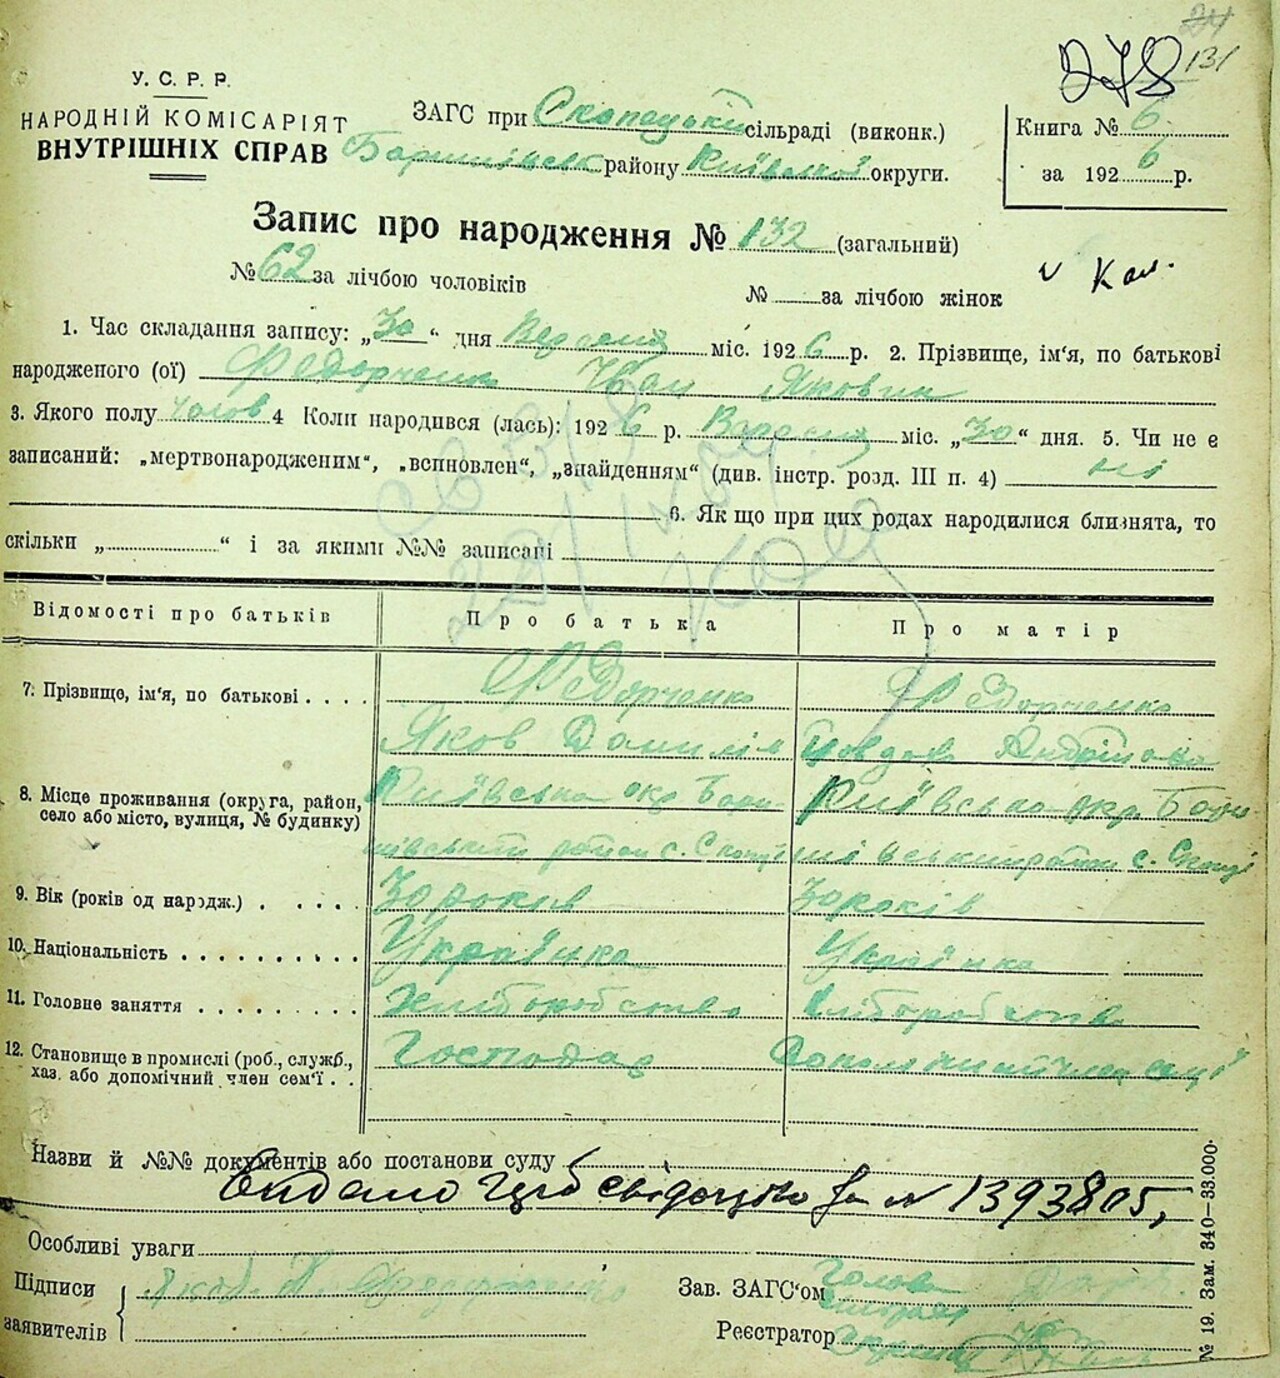 131
278
У. С. Р. Р.
НАРОДНІЙ КОМІСАРІЯТ
ВНУТРІШНІХ СПРАВ
ЗАГС при Скопецькій сільраді (виконк.)
Баришівськ району Київської округи.
Книга № 6
за 1926 р.
Запис про народження № 132 (загальний)
№ 62 за лічбою чоловіків
№ за лічбою жінок
1. Час складання запису: „30“ дня Вересня міс. 1926 р. 2. Прізвище, ім'я, по батькові
народженого (ої) Федорченко Іван Якович
3. Якого полу чолов. 4 Коли народився (лась): 1926 р. Вересня міс. „30“ дня. 5. Чи не є
записаний: „мертвонародженим“, „вспновлен“, „знайденням“ (див. інстр. розд. III п. 4) ні
6. Якщо при цих родах народилися близнята, то
скільки „ “ і за якими №№ записані
Відомості про батьків
Про батька
Про матір
7. Прізвище, ім'я, по батькові . . . .
Федорченко
Федорченко
Яков Данилів
Андріївна
8. Місце проживання (округа, район,
село або місто, вулиця, № будинку)
Київська окр Бари
Київська окр. Бари
шівський район с. Скопці
шівський район с. Скопці
9. Вік (років од народж.) . . . . .
30 років
30 років
10. Національність . . . . . . . . . .
Українка
Українка
11. Головне заняття . . . . . . . . .
Хліборобство
Хліборобство
12. Становище в промислі (роб., служб.,
хаз. або допомічний член сем'ї . .
Господар
член сем'ї
Назви й №№ документів або постанови суду
Видано свідоцтво за № 1393805,
Особливі уваги
Підписи
заявителів
Яков Федорченко
Зав. ЗАГС'ом Голова
сільради
Реєстратор
№ 19. Зам. 340—33.000.